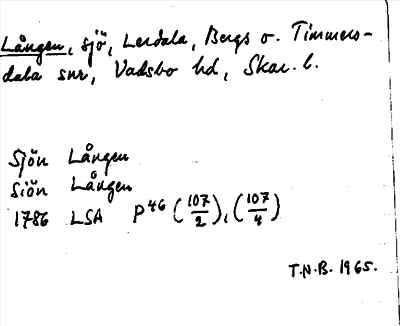 Lången, sjö, Lerdala, Bergs o. Timmers-
dala snr, Vadsbo hd, Skar. l.
Sjön Lången
Siön Lången
1786 LSA P46 (107/2), (107/4)
T.N.B. 1965.